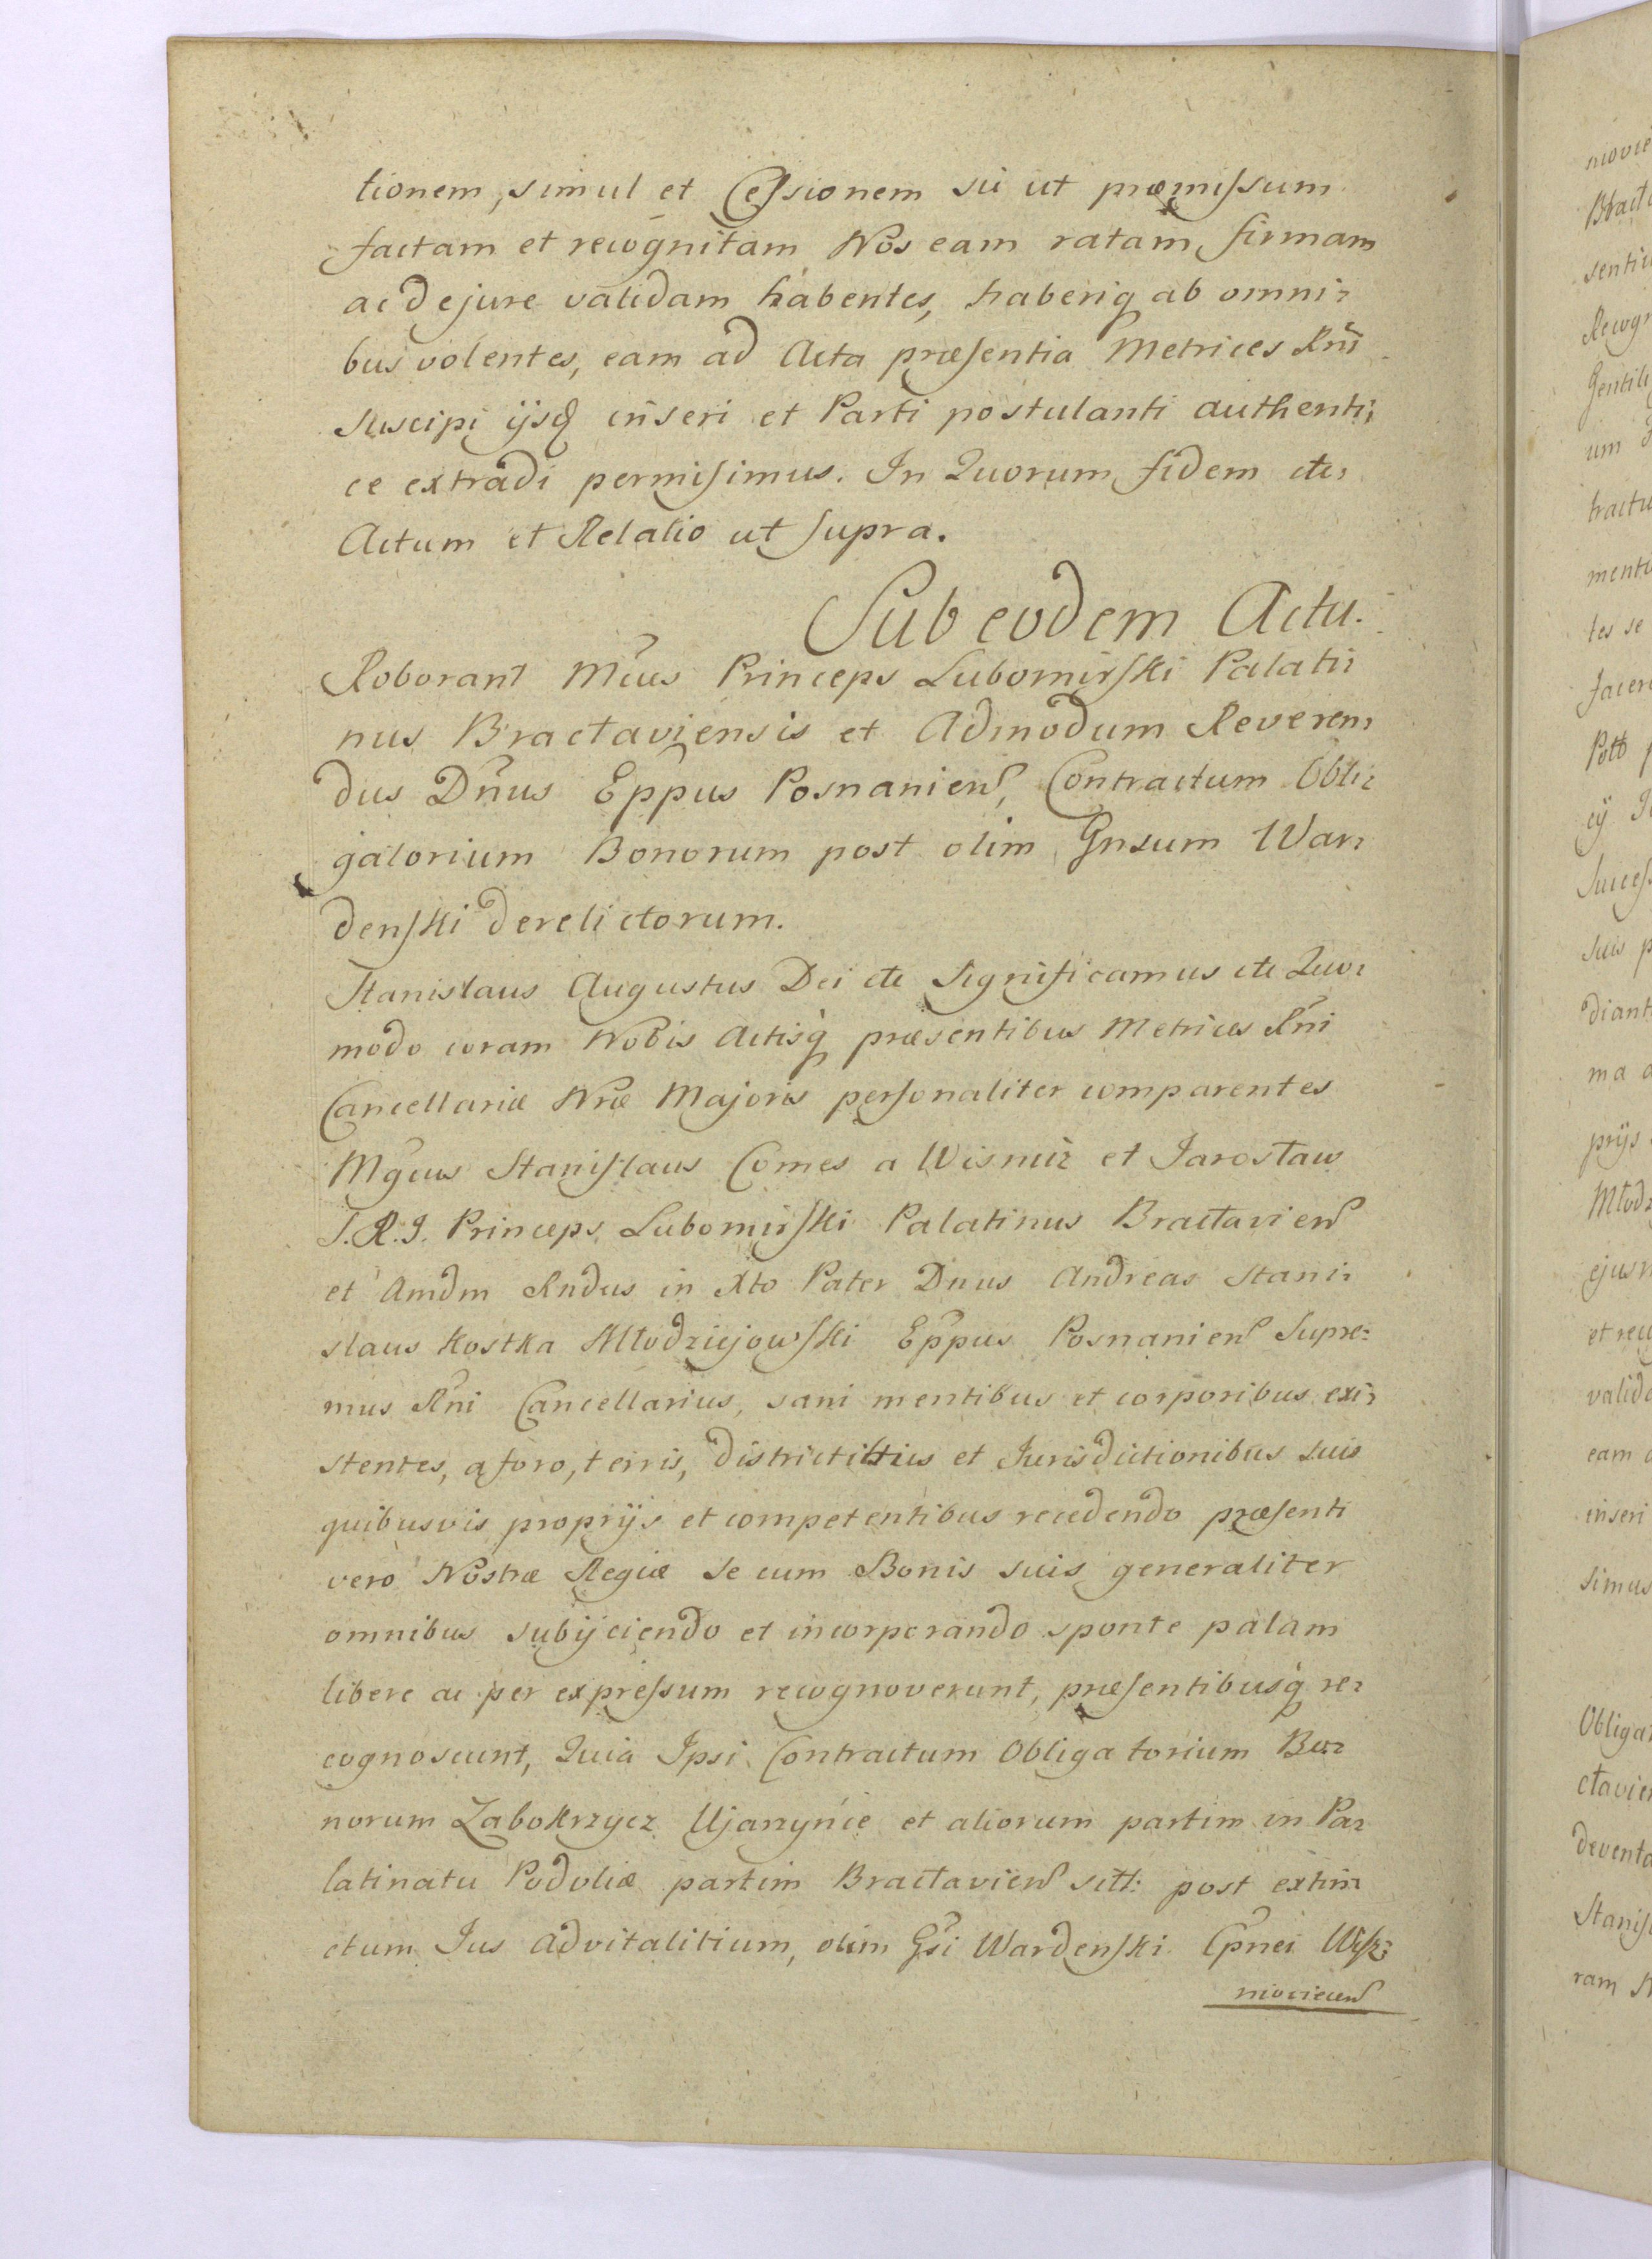 tionem, simul et Cessionem sic ut præmissum
factam et recognitam Nos eam ratam, firmam
ac de jure validam habentes, haberiq ab omni-
bus volentes, eam ad Acta præsentia Metrices Rni
suscipi ijsq inseri et Parti postulanti authenti-
ce extradi permisimus. In Quorum fidem etc
Actum et Relatio ut supra.
Sub eodem Actu.
Roborant Mcus Princeps Lubomirski Palati-
nus Bractaviensis et Admodum Reveren-
dus Dnus Eppus Posnanien, Contractum Obli-
gatorium Bonorum post olim Gnsum War-
denski derelictorum.
Stanislaus Augustus Dei etc Significamus etc Quo-
modo coram Nobis Actisq præsentibus Metrices Rni
Cancellariæ Nræ Majoris personaliter comparentes
Mgcus Stanislaus Comes a Wisnicz et Jarosław
S. R. I. Princeps Lubomirski Palatinus Bractavien
et Amdm Rndus in Xto Pater Dnus Andreas Stani-
slaus Kostka Młodziejowski Eppus Posnanien Supre-
mus Rni Cancellarius, sani mentibus et corporibus exi-
stentes, a foro, terris, districtibus et Jurisdictionibus suis
quibusvis proprijs et competentibus recedendo præsenti
vero Nostræ Regiæ se cum Bonis suis generaliter
omnibus subijciendo et incorporando sponte palam
libere ac per expressum recognoverunt, præsentibusq re-
cognoscunt, Quia Ipsi Contractum Obligatorium Bo-
norum Zabokrzycz Ujarzynie et aliorum partim in Pa-
latinatu Podoliæ partim Bractavien sitt: post extin-
ctum Jus advitalitium, olim Gsi Wardenski Cpnei Wisz-
niovicien